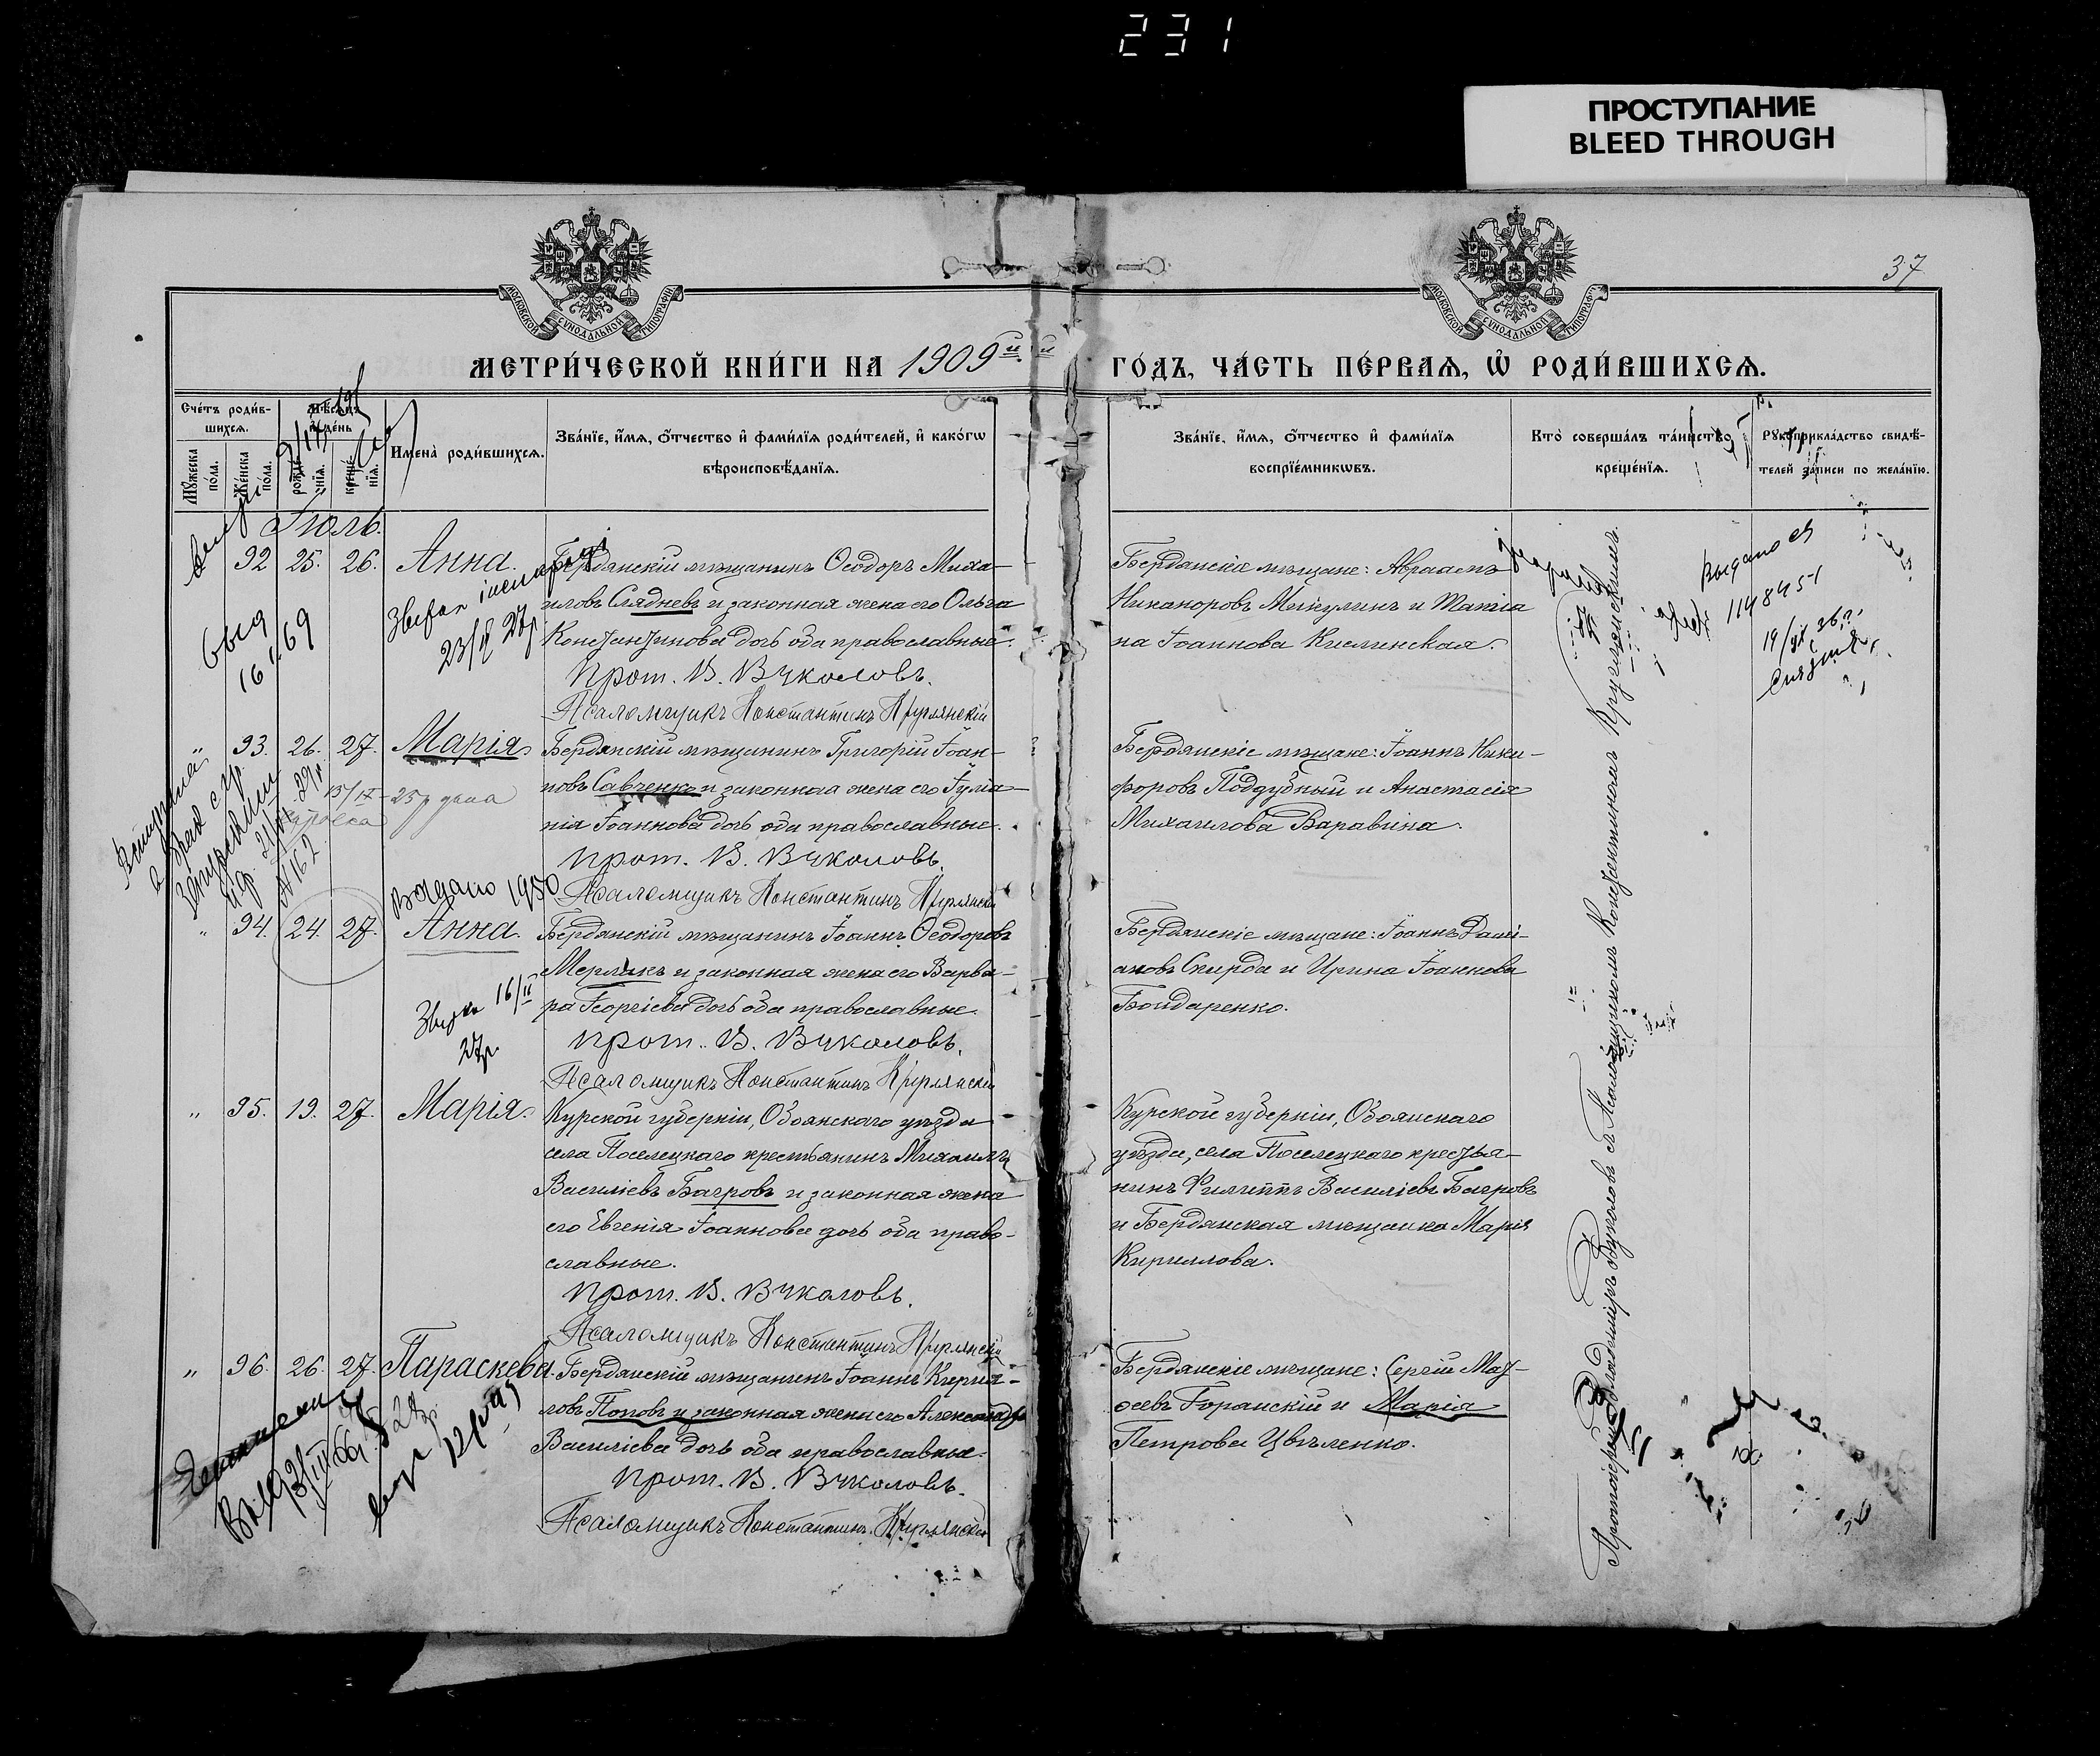 231
ПРОСТУПАНИЕ
BLEED THROUGH
37
МОСКОВСКОЙ СѴНОДАЛЬНОЙ ТИПОГРАФІИ
МОСКОВСКОЙ СѴНОДАЛЬНОЙ ТИПОГРАФІИ
МЕТРИ́ЧЕСКОЙ КНИ́ГИ НА 1909й ГО́ДЪ, ЧА́СТЬ ПЕ́РВАѦ, Ѽ РОДИ́ВШИХСѦ.
Сче́тъ роди́в-
шихсѧ.
Мѹжеска по́ла.
Же́нска по́ла.
Мѣ́сѧцъ
и҆ де́нь
рожде́нїѧ.
креще́нїѧ.
И҆мена̀ роди́вшихсѧ.
Зва́нїе, и҆́мѧ, ѻ҆́тчество и҆ фами́лїѧ роди́телей, и҆ како́гѡ
вѣроисповѣ́данїѧ.
Зва́нїе, и҆́мѧ, ѻ҆́тчество и҆ фами́лїѧ
воспрїе́мникѡвъ.
Кто̀ соверша́лъ та́инство
креще́нїѧ.
Рѹкоприкла́дство свидѣ́-
телей за́писи по жела́нїю.
Іюль.
92 25. 26. Анна.
Бердянскій мѣщанинъ Ѳеодоръ Миха-
иловъ Слядневъ и законная жена его Ольга
Константинова дочь оба православные.
Прот. В. Вуколовъ.
Псаломщикъ Константинъ Круглянскій
Бердянскіе мѣщане: Авраамъ
Никаноровъ Микулинъ и Матія
на Іоаннова Кислинская.
Выдано св
1148451
" 93. 26. 27. Марія.
Бердянскій мѣщанинъ Григорій Іоан-
новъ Савченко и законная жена его Іулiа-
нія Іоаннова дочь оба православные.
Прот. В. Вуколовъ.
Псаломщикъ Константинъ Круглянскій
Бердянскіе мѣщане: Іоаннъ Ники-
форовъ Поддубный и Анастасія
Михаилова Варавина.
Выдано 1950
" 94. 24. 27. Анна.
Бердянскій мѣщанинъ Іоаннъ Ѳеодоровъ
Мерликъ и законная жена его Варва-
ра Георгіева дочь оба православные.
Прот. В. Вуколовъ.
Псаломщикъ Константинъ Круглянскій
Бердянскіе мѣщане: Іоаннъ Дамі-
ановъ Скирда и Ирина Іоаннова
Бондаренко.
" 95. 19. 27. Марія.
Курской губерніи, Обоянскаго уѣзда
села Поселецкаго крестьянинъ Михаилъ
Василіевъ Багровъ и законная жена
его Евгенія Іоаннова дочь оба право-
славные.
Прот. В. Вуколовъ.
Псаломщикъ Константинъ Круглянскій
Курской губерніи, Обоянскаго
уѣзда, села Поселецкаго крестья-
нинъ Филиппъ Василіевъ Багровъ
и Бердянская мѣщанка Марія
Кириллова.
" 96. 26. 27. Параскева.
Бердянскій мѣщанинъ Іоаннъ Кирил-
ловъ Поповъ и законная жена его Александра
Василіева дочь оба православные.
Прот. В. Вуколовъ.
Псаломщикъ Константинъ Круглянскій
Бердянскіе мѣщане: Сергій Мат-
ѳеевъ Горанскій и Марія
Петрова Цвѣленко.
Протоіерей Владиміръ Вуколовъ съ Псаломщикомъ Константиномъ Круглянскимъ.